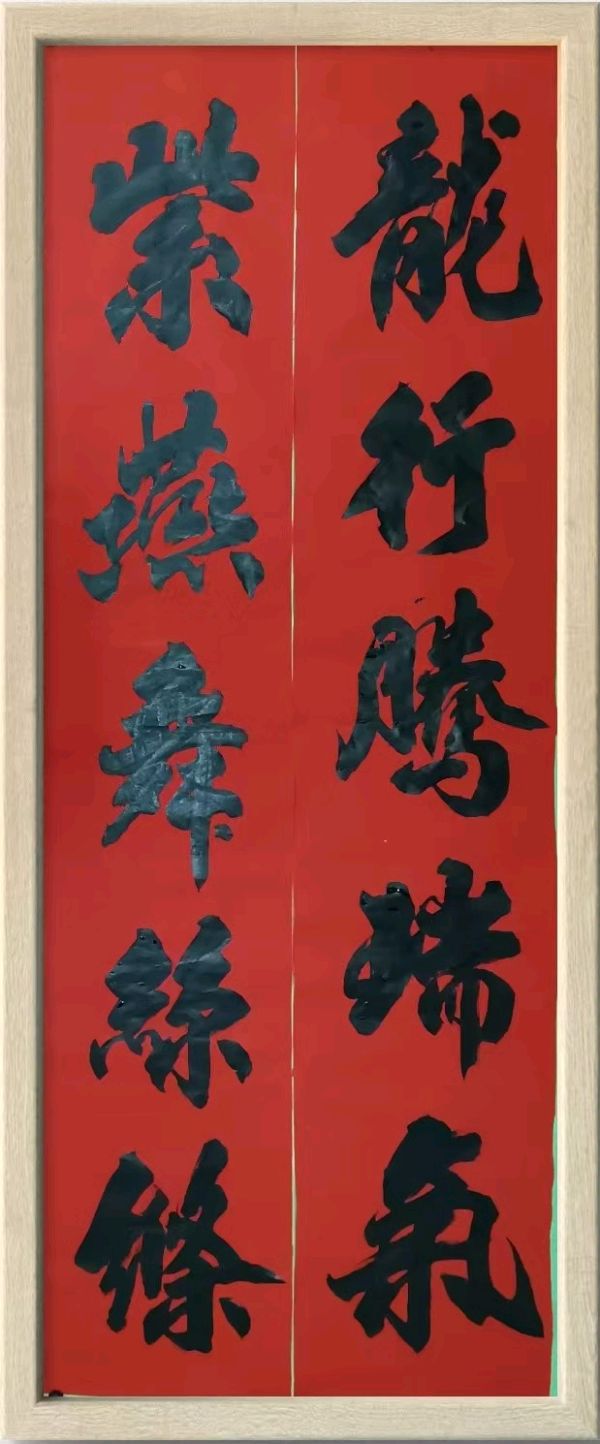 龍行騰瑞氣
紫燕舞絲絛